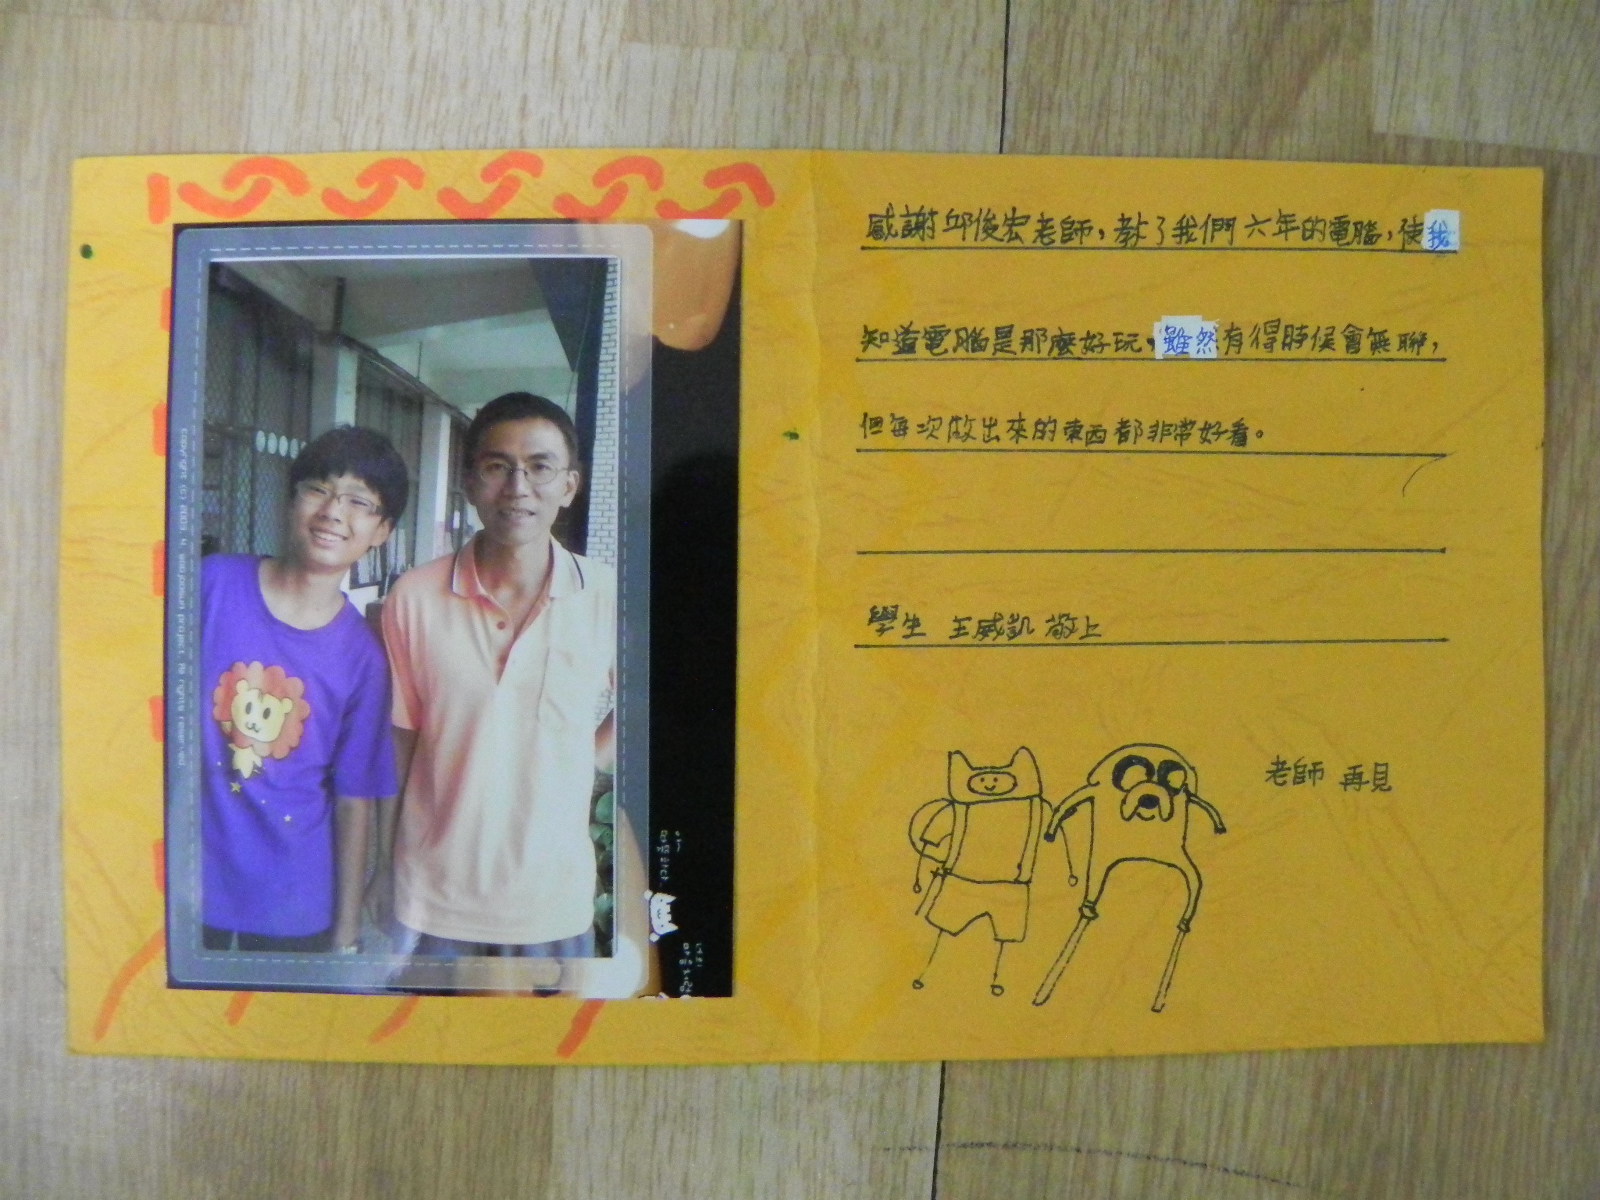 感謝邱俊宏老師，教了我們六年的電腦，使我
知道電腦是那麼好玩，雖然有得時候會無聊，
但每次做出來的東西都非常好看。
學生 王威凱 敬上
老師 再見